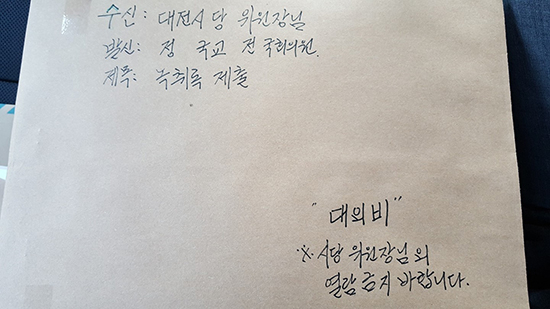 수신: 대전시당 위원장님
발신: 정 국교 전 국회의원.
제목: 녹취록 제출
"대외비"
※ 시당 위원장님의
열람 금지 바랍니다.